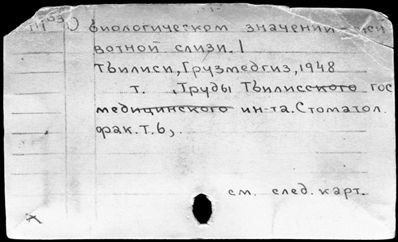 О биологическом значении
вотной слизи. |
Тбилиси, Грузмедгиз, 1948
т. , Труды Тбилисского гос
медицинского ин-та. Стоматол.
фак. Т. 6, .
см. след. карт.